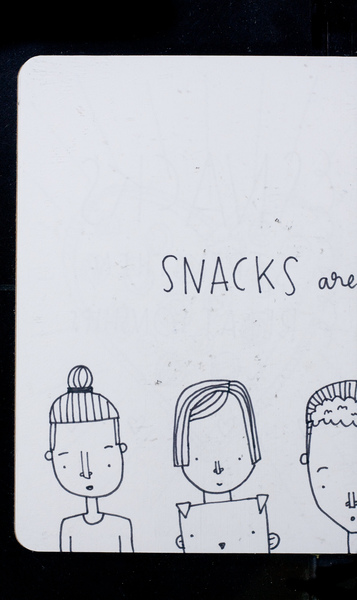 SNACKS are